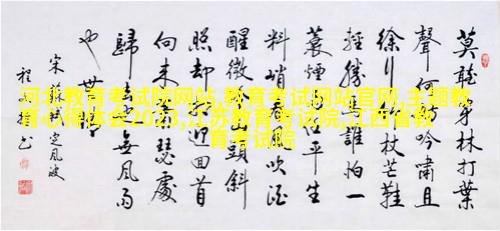 莫聽穿林打葉
聲何妨吟嘯且
徐行竹杖芒鞋
輕勝馬誰怕一
蓑煙雨任平生
料峭春風吹酒
醒微冷山頭斜
照却相迎回首
向來蕭瑟處
歸去也無風雨
也無晴
宋蘇軾定風波
程 書
河北教育考试院网站,教育考试网站官网,主题教
育心得体会2023,江苏教育考试院,江西省教
育考试院